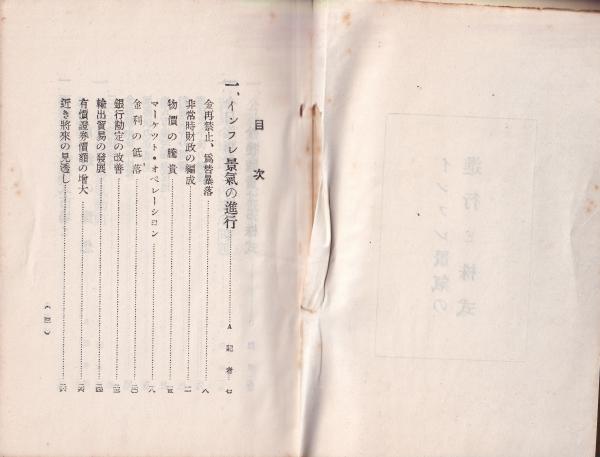 インフレ景氣の
進行と株式
目次
一、インフレ景氣の進行 A 記者 七
金再禁止、爲替暴落 八
非常時財政の編成
物價の騰貴
マーケツト・オペレーシヨン
金利の低落
銀行勘定の改善
輸出貿易の發展
有價證券價額の增大
近き將來の見透し